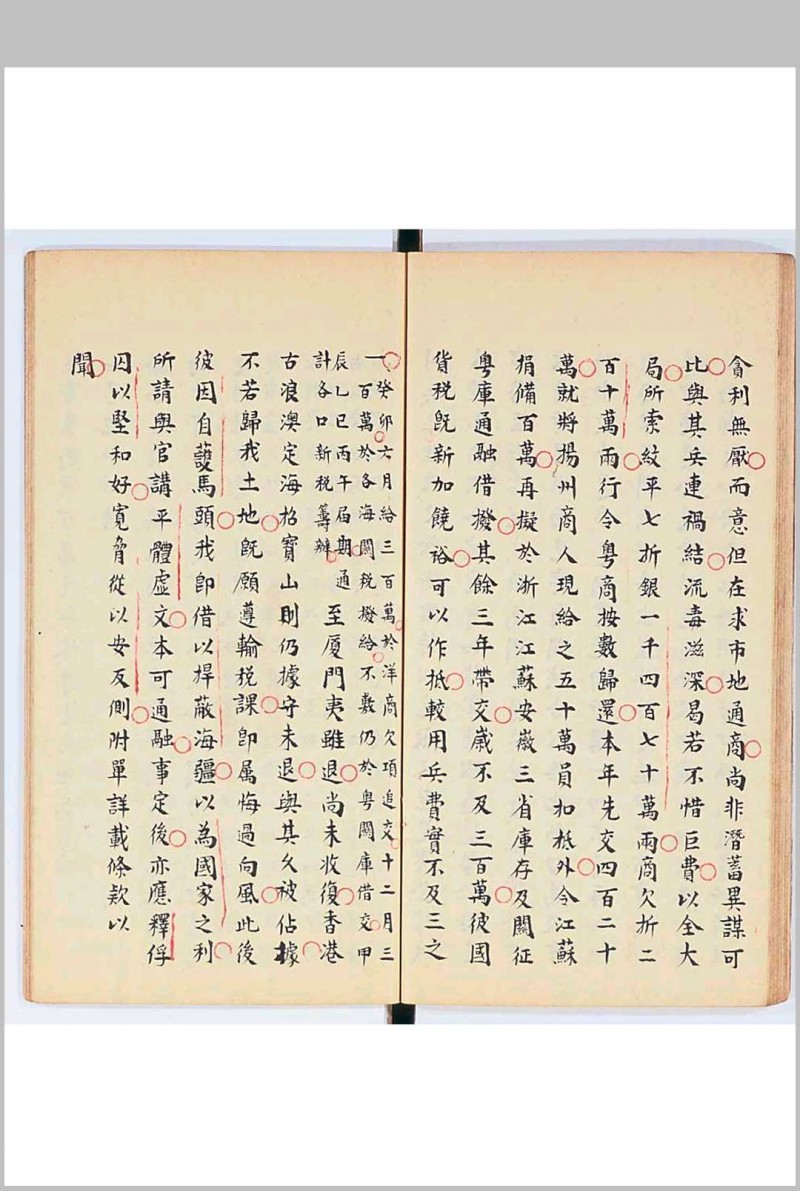 貪利無厭而意但在求市地通商尚非潛蓄異謀可
比與其兵連禍結流毒滋深曷若不惜巨費以全大
局所索紋平七折銀一千四百七十萬兩商欠折二
百十萬兩行令粵商按數歸還本年先交四百二十
萬就將揚州商人現給之五十萬員扣抵外令江蘇
捐備百萬再擬於浙江江蘇安徽三省庫存及關征
粵庫通融借撥其餘三年帶交歲不及三百萬彼國
貨稅既新加饒裕可以作抵較用兵費實不及三之
一癸卯六月給三百萬於洋商欠項追交十二月三
百萬於各海關稅撥給不敷仍於粵關庫借交甲
辰乙巳丙午届期通
計各口新稅籌辦
至厦門夷雖退尚未收復香港
古浪澳定海招寶山則仍據守未退與其久被佔據
不若歸我土地既願遵輸稅課即属悔過向風此後
彼因自護馬頭我即借以捍蔽海疆以為國家之利
所請與官講平體虛文本可通融事定後亦應釋俘
囚以堅和好寬脅從以安反側附單詳載條款以
聞